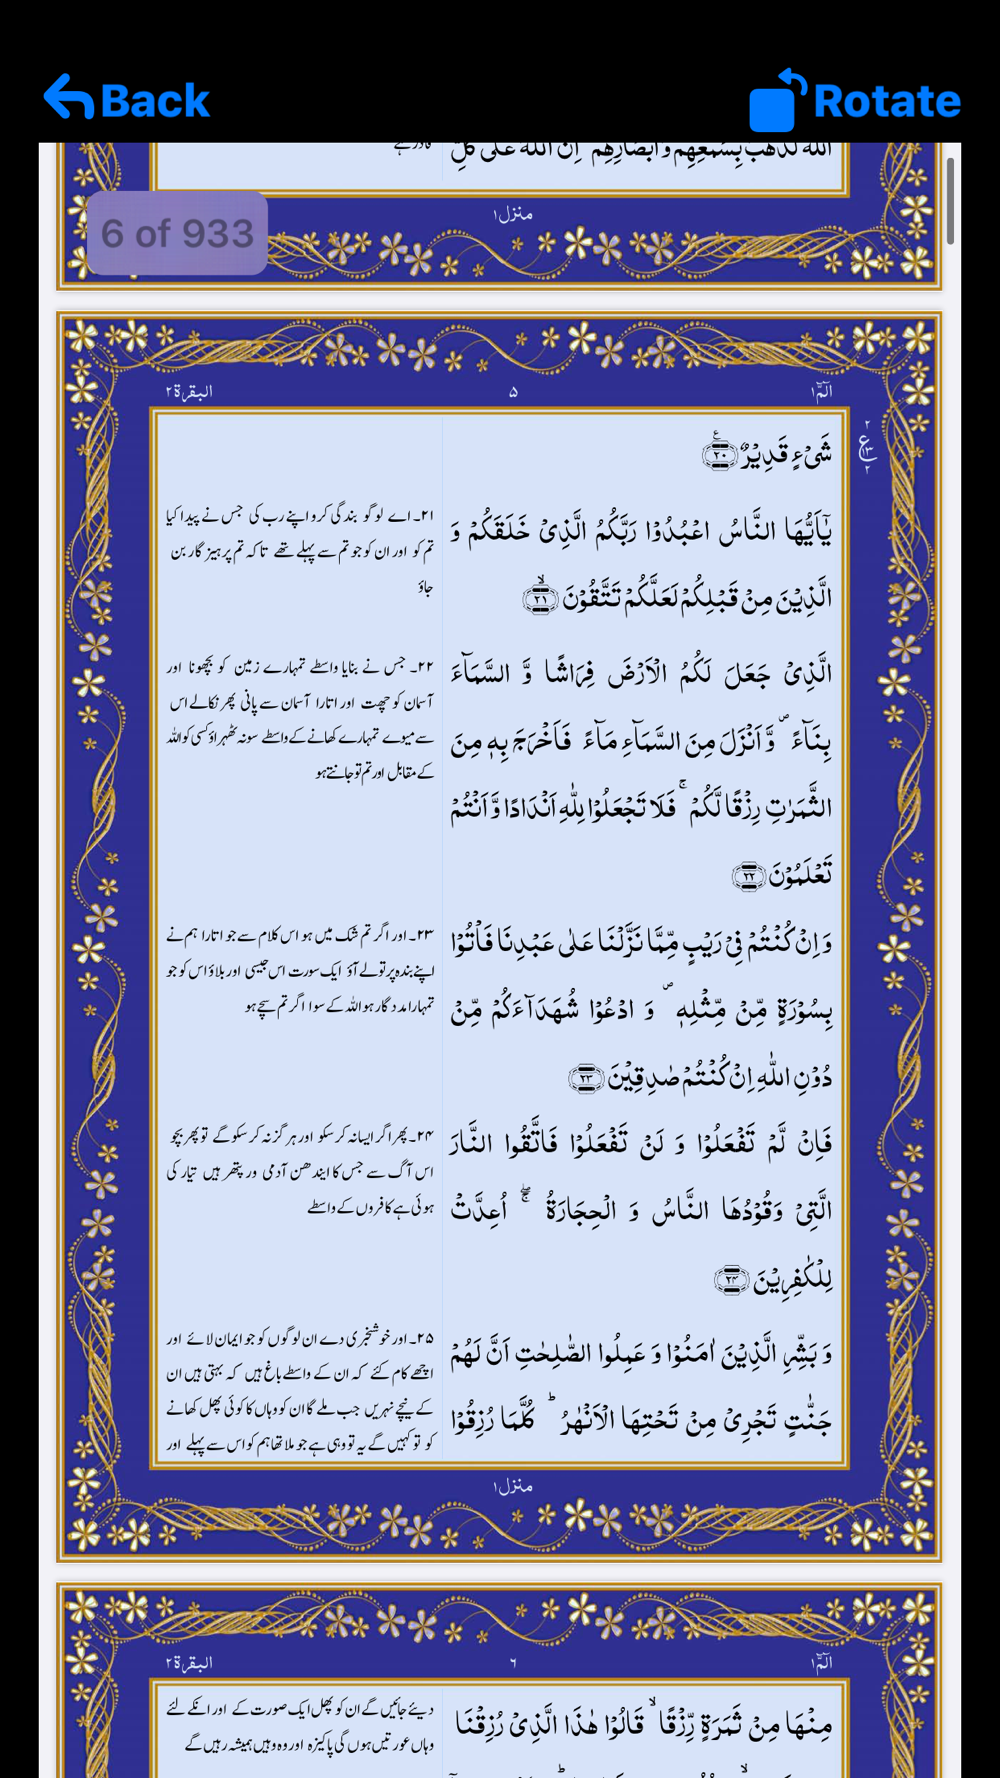 Back
Rotate
6 of 933
اللّٰهُ لَذَهَبَ بِسَمْعِهِمْ وَاَبْصَارِهِمْ اِنَّ اللّٰهَ عَلٰى كُلِّ
قادر ہے
منزل۱
الٓمّٓ۱
۵
البقرة۲
شَىْءٍ قَدِيْرٌ ﴿۲۰﴾
يٰۤاَيُّهَا النَّاسُ اعْبُدُوْا رَبَّكُمُ الَّذِىْ خَلَقَكُمْ وَ
الَّذِيْنَ مِنْ قَبْلِكُمْ لَعَلَّكُمْ تَتَّقُوْنَ ۙ﴿۲۱﴾
۲۱۔ اے لوگو بندگی کرو اپنے رب کی جس نے پیدا کیا
تم کو اور ان کو جو تم سے پہلے تھے تاکہ تم پرہیز گار بن
جاؤ
الَّذِىْ جَعَلَ لَكُمُ الْاَرْضَ فِرَاشًا وَّ السَّمَآءَ
بِنَآءً ۪ وَّ اَنْزَلَ مِنَ السَّمَآءِ مَآءً فَاَخْرَجَ بِهٖ مِنَ
الثَّمَرٰتِ رِزْقًا لَّكُمْ ۚ فَلَا تَجْعَلُوْا لِلّٰهِ اَنْدَادًا وَّ اَنْتُمْ
تَعْلَمُوْنَ ﴿۲۲﴾
۲۲۔ جس نے بنایا واسطے تمہارے زمین کو بچھونا اور
آسمان کو چھت اور اتارا آسمان سے پانی پھر نکالے اس
سے میوے تمہارے کھانے کے واسطے سو نہ ٹھہراؤ کسی کو اللہ
کے مقابل اور تم تو جانتے ہو
وَ اِنْ كُنْتُمْ فِىْ رَيْبٍ مِّمَّا نَزَّلْنَا عَلٰى عَبْدِنَا فَاْتُوْا
بِسُوْرَةٍ مِّنْ مِّثْلِهٖ ۪ وَ ادْعُوْا شُهَدَآءَكُمْ مِّنْ
دُوْنِ اللّٰهِ اِنْ كُنْتُمْ صٰدِقِيْنَ ﴿۲۳﴾
۲۳۔ اور اگر تم شک میں ہو اس کلام سے جو اتارا ہم نے
اپنے بندہ پر تو لے آؤ ایک سورت اس جیسی اور بلاؤ اس کو جو
تمہارا مدد گار ہو اللہ کے سوا اگر تم سچے ہو
فَاِنْ لَّمْ تَفْعَلُوْا وَ لَنْ تَفْعَلُوْا فَاتَّقُوا النَّارَ
الَّتِىْ وَقُوْدُهَا النَّاسُ وَ الْحِجَارَةُ ۖۚ اُعِدَّتْ
لِلْكٰفِرِيْنَ ﴿۲۴﴾
۲۴۔ پھر اگر ایسا نہ کر سکو اور ہر گز نہ کر سکو گے تو پھر بچو
اس آگ سے جس کا ایندھن آدمی ور پتھر ہیں تیار کی
ہوئی ہے کافروں کے واسطے
وَ بَشِّرِ الَّذِيْنَ اٰمَنُوْا وَ عَمِلُوا الصّٰلِحٰتِ اَنَّ لَهُمْ
جَنّٰتٍ تَجْرِىْ مِنْ تَحْتِهَا الْاَنْهٰرُ ؕ كُلَّمَا رُزِقُوْا
۲۵۔ اور خوشخبری دے ان لوگوں کو جو ایمان لائے اور
اچھے کام کئے کہ ان کے واسطے باغ ہیں کہ بہتی ہیں ان
کے نیچے نہریں جب ملے گا ان کو وہاں کا کوئی پھل کھانے
کو تو کہیں گے یہ تو وہی ہے جو ملا تھا ہم کو اس سے پہلے اور
۲
ع
۳
۲
منزل۱
الٓمّٓ۱
۶
البقرة۲
مِنْهَا مِنْ ثَمَرَةٍ رِّزْقًا ۙ قَالُوْا هٰذَا الَّذِىْ رُزِقْنَا
دیئے جائیں گے ان کو پھل ایک صورت کے اور انکے لئے
وہاں عورتیں ہوں گی پاکیزہ اور وہ وہیں ہمیشہ رہیں گے